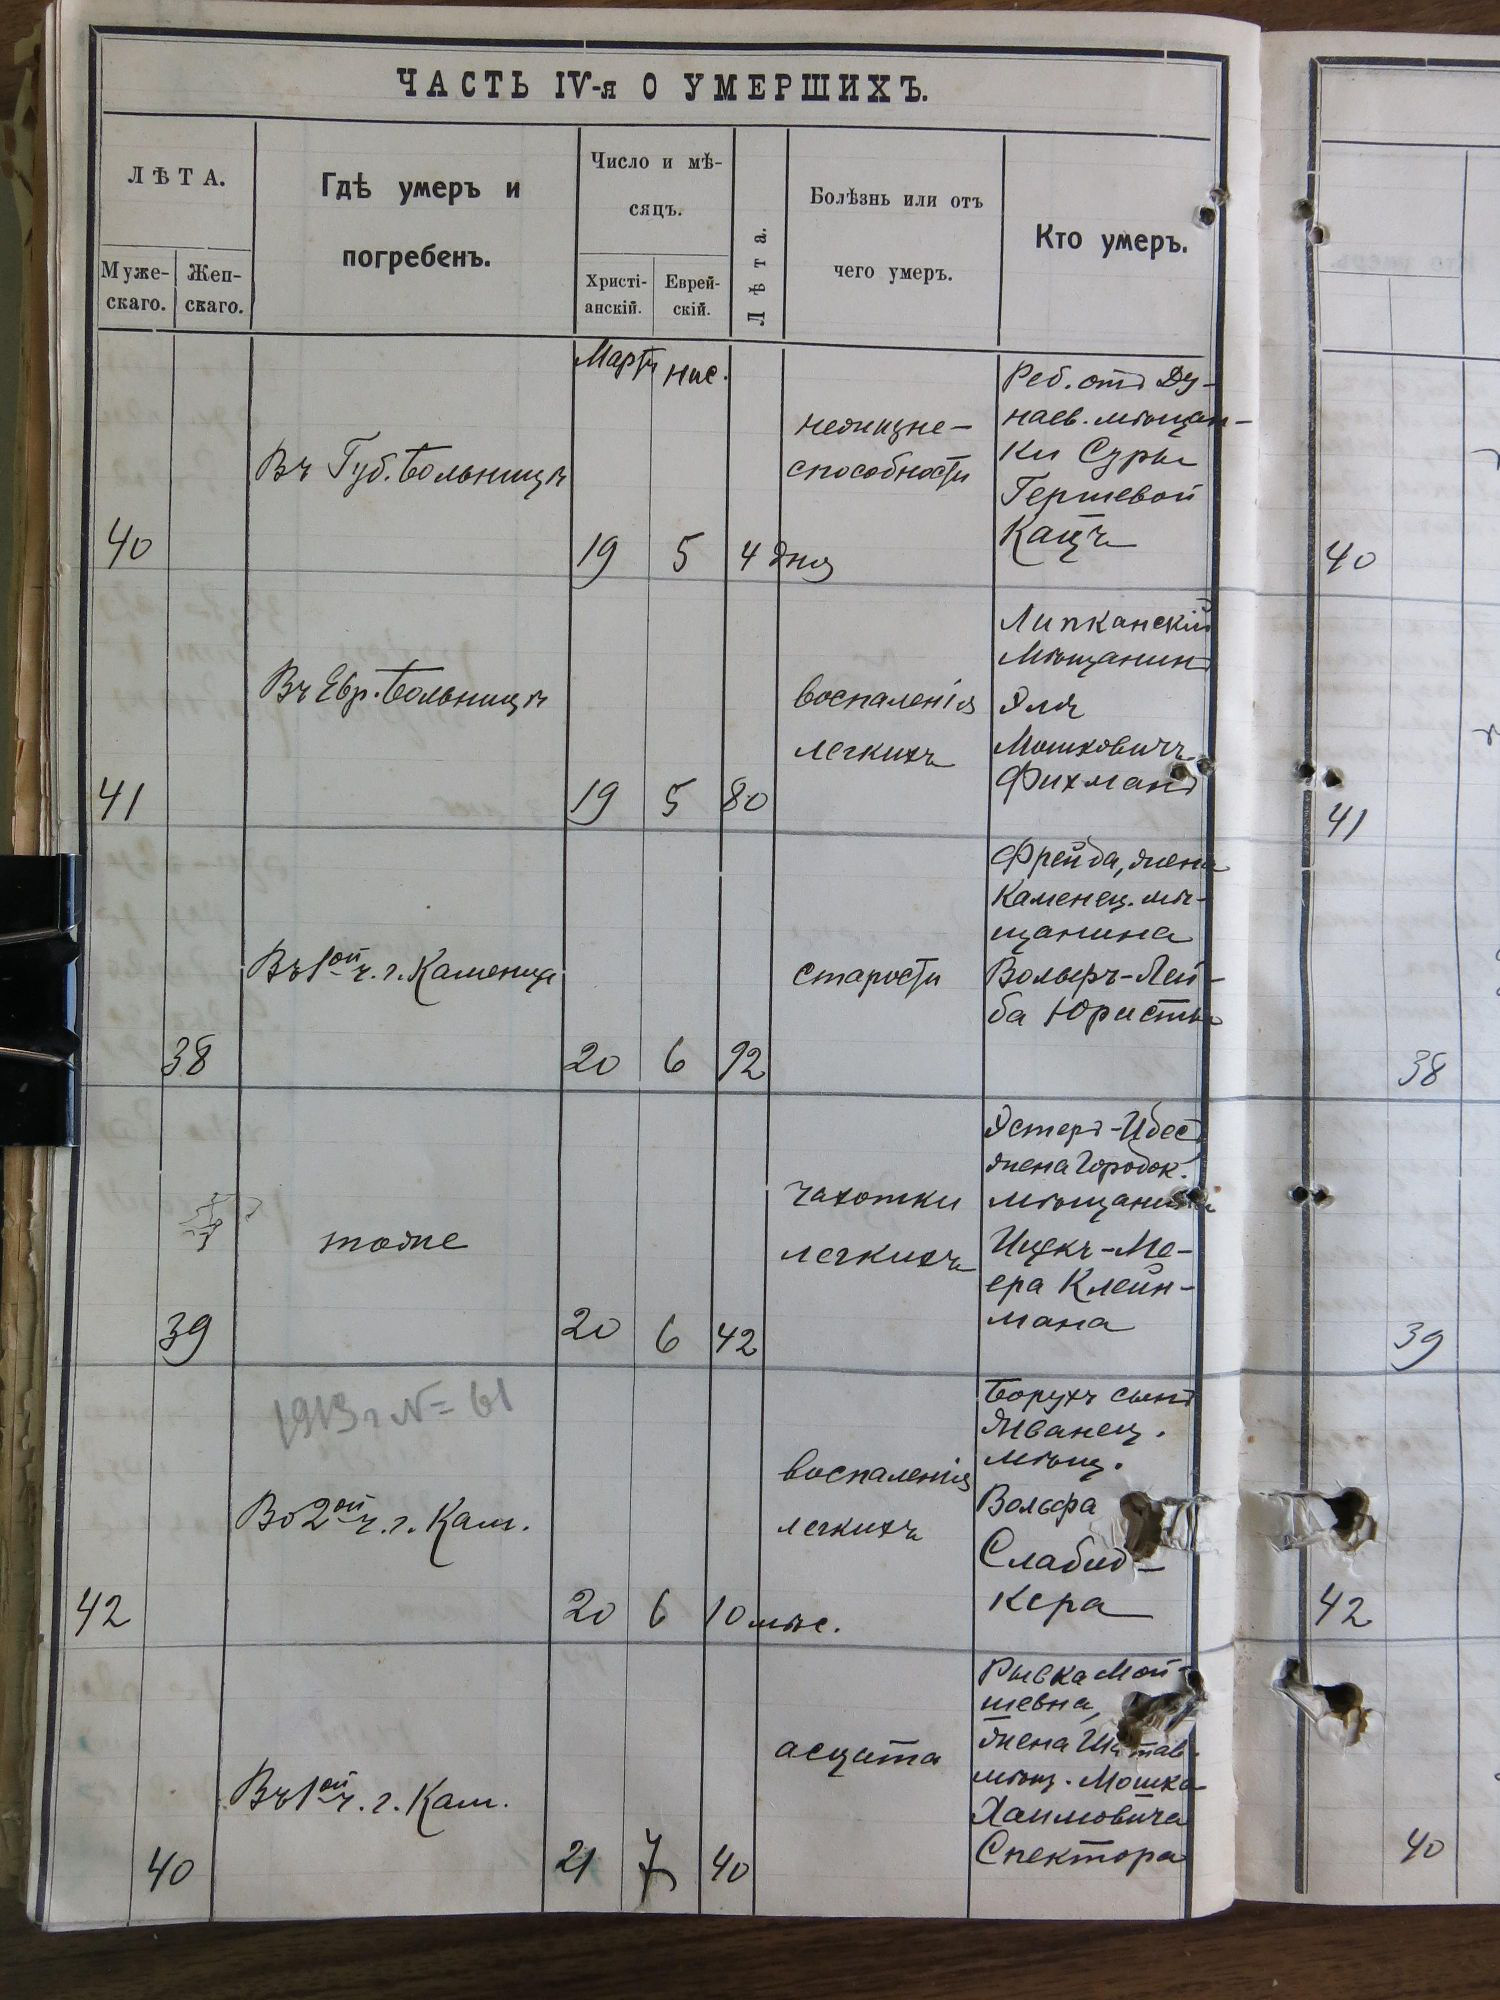 ЧАСТЬ IV-я О УМЕРШИХЪ.
ЛѢТА.
Муже-
скаго.
Жен-
скаго.
Гдѣ умеръ и
погребенъ.
Число и мѣ-
сяцъ.
Христі-
анскій.
Еврей-
скій.
Лѣта.
Болѣзнь или отъ
чего умеръ.
Кто умеръ.
Мартъ
Нис.
40
Въ Губ. Больницѣ
19
5
4 дня
нежизне-
способности
Реб. отъ Ду-
наев. мѣщан-
ки Суры
Гершевой
Кацъ
40
41
Въ Евр. Больницѣ
19
5
80
воспаленія
легкихъ
Липканскій
мѣщанинъ
Эля
Мошковичъ
Фихманъ
41
38
Въ 1ой ч. г. Каменца
20
6
92
старости
Фрейда, жена
Каменец. мѣ-
щанина
Вольфъ-Лей-
ба Юристъ
38
39
тоже
20
6
42
чахотки
легкихъ
Эстеръ-
жена Городок.
мѣщанина
Ицекъ-Ме-
ера Клейн-
мана
39
1913 г № 61
42
Во 2ой ч. г. Кам.
20
6
10 мѣс.
воспаленія
легкихъ
Борухъ сынъ
Жванец.
мѣщ.
Вольфа
Слабод-
кера
42
40
Въ 1ой ч. г. Кам.
21
7
40
асцита
Рывка Мой-
шевна,
жена Шатав.
мѣщ. Мошка
Хаимовича
Спектора
40